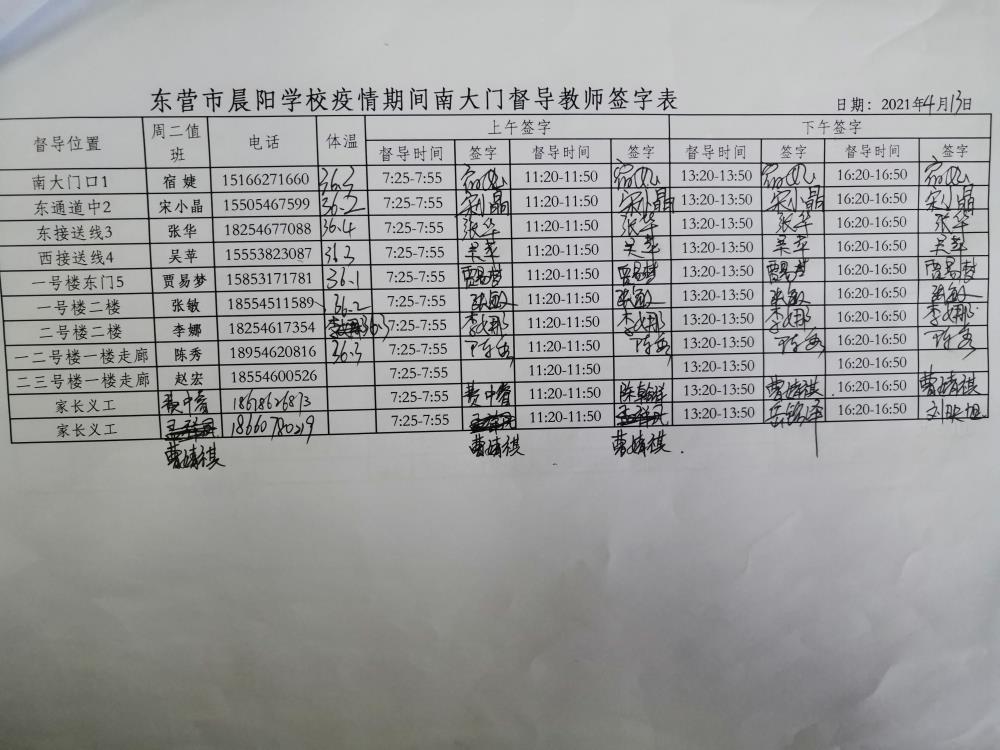 东营市晨阳学校疫情期间南大门督导教师签字表
日期：2021年4月13日
督导位置 周二值班 电话 体温 上午签字 下午签字
督导时间 签字 督导时间 签字 督导时间 签字 督导时间 签字
南大门口1 宿婕 15166271660 36.3 7:25-7:55 宿婕 11:20-11:50 宿婕 13:20-13:50 宿婕 16:20-16:50 宿婕
东通道中2 宋小晶 15505467599 36.2 7:25-7:55 宋小晶 11:20-11:50 宋小晶 13:20-13:50 宋小晶 16:20-16:50 宋小晶
东接送线3 张华 18254677088 36.4 7:25-7:55 张华 11:20-11:50 张华 13:20-13:50 张华 16:20-16:50 张华
西接送线4 吴苹 15553823087 7:25-7:55 吴苹 11:20-11:50 吴苹 13:20-13:50 吴苹 16:20-16:50 吴苹
一号楼东门5 贾易梦 15853171781 36.1 7:25-7:55 贾易梦 11:20-11:50 贾易梦 13:20-13:50 贾易梦 16:20-16:50 贾易梦
一号楼二楼 张敏 18554511589 36.2 7:25-7:55 张敏 11:20-11:50 张敏 13:20-13:50 张敏 16:20-16:50 张敏
二号楼二楼 李娜 18254617354 36.3 7:25-7:55 李娜 11:20-11:50 李娜 13:20-13:50 李娜 16:20-16:50 李娜
一二号楼一楼走廊 陈秀 18954620816 36.3 7:25-7:55 陈秀 11:20-11:50 陈秀 13:20-13:50 陈秀 16:20-16:50 陈秀
二三号楼一楼走廊 赵宏 18554600526 7:25-7:55 11:20-11:50 13:20-13:50 16:20-16:50
家长义工 18678626873 7:25-7:55 11:20-11:50 13:20-13:50 曹婧祺 16:20-16:50 曹婧祺
家长义工 18660780219 7:25-7:55 11:20-11:50 13:20-13:50 16:20-16:50
曹婧祺 曹婧祺 曹婧祺